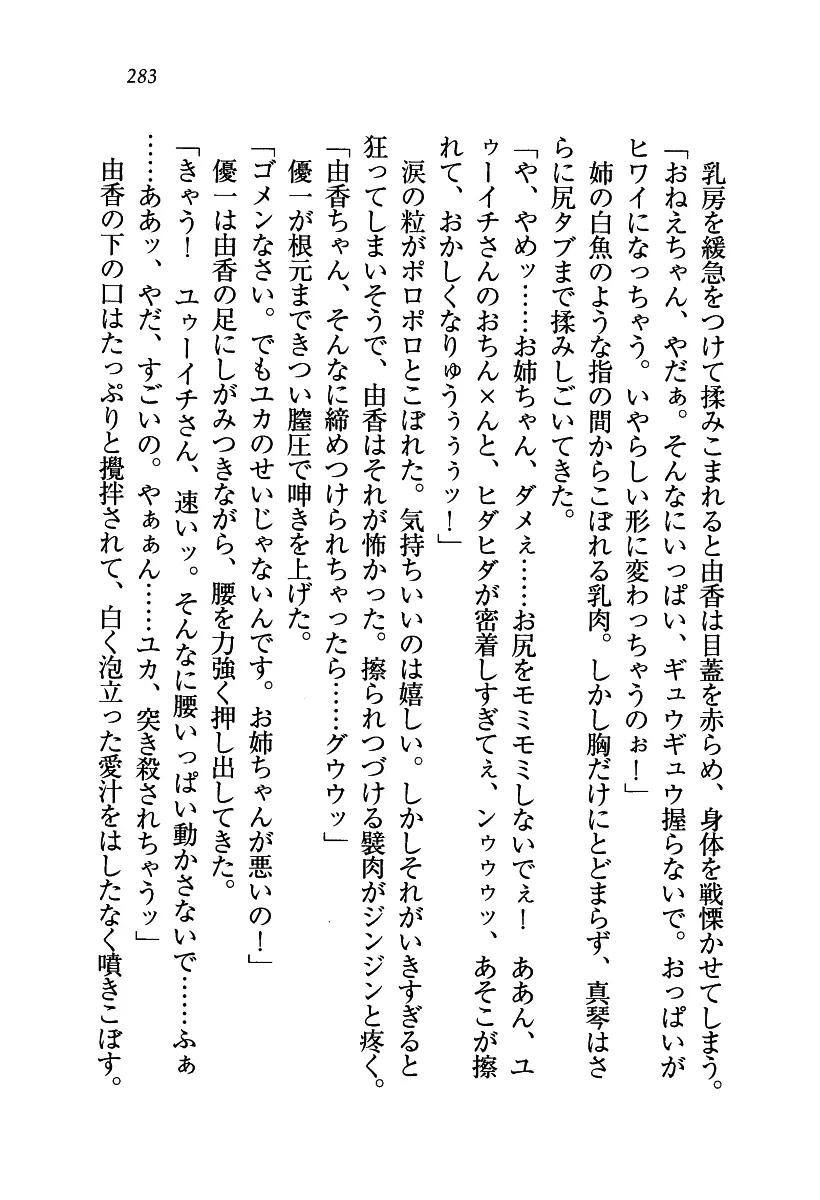 283
乳房を緩急をつけて揉みこまれると由香は目蓋を赤らめ、身体を戦慄かせてしまう。
「おねえちゃん、やだぁ。そんなにいっぱい、ギュウギュウ握らないで。おっぱいが
ヒワイになっちゃう。いやらしい形に変わっちゃうのぉ！」
姉の白魚のような指の間からこぼれる乳肉。しかし胸だけにとどまらず、真琴はさ
らに尻タブまで揉みしごいてきた。
「や、やめッ……お姉ちゃん、ダメぇ……お尻をモミモミしないでぇ！　ああん、ユ
ゥーイチさんのおちん×んと、ヒダヒダが密着しすぎてぇ、ンゥゥゥッ、あそこが擦
れて、おかしくなりゅうぅぅぅッ！」
涙の粒がポロポロとこぼれた。気持ちいいのは嬉しい。しかしそれがいきすぎると
狂ってしまいそうで、由香はそれが怖かった。擦られつづける襞肉がジンジンと疼く。
「由香ちゃん、そんなに締めつけられちゃったら……グウウッ」
優一が根元まできつい膣圧で呻きを上げた。
「ゴメンなさい。でもユカのせいじゃないんです。お姉ちゃんが悪いの！」
優一は由香の足にしがみつきながら、腰を力強く押し出してきた。
「きゃう！　ユゥーイチさん、速いッ。そんなに腰いっぱい動かさないで……ふぁ
……ああッ、やだ、すごいの。やぁぁん……ユカ、突き殺されちゃうッ」
由香の下の口はたっぷりと攪拌されて、白く泡立った愛汁をはしたなく噴きこぼす。